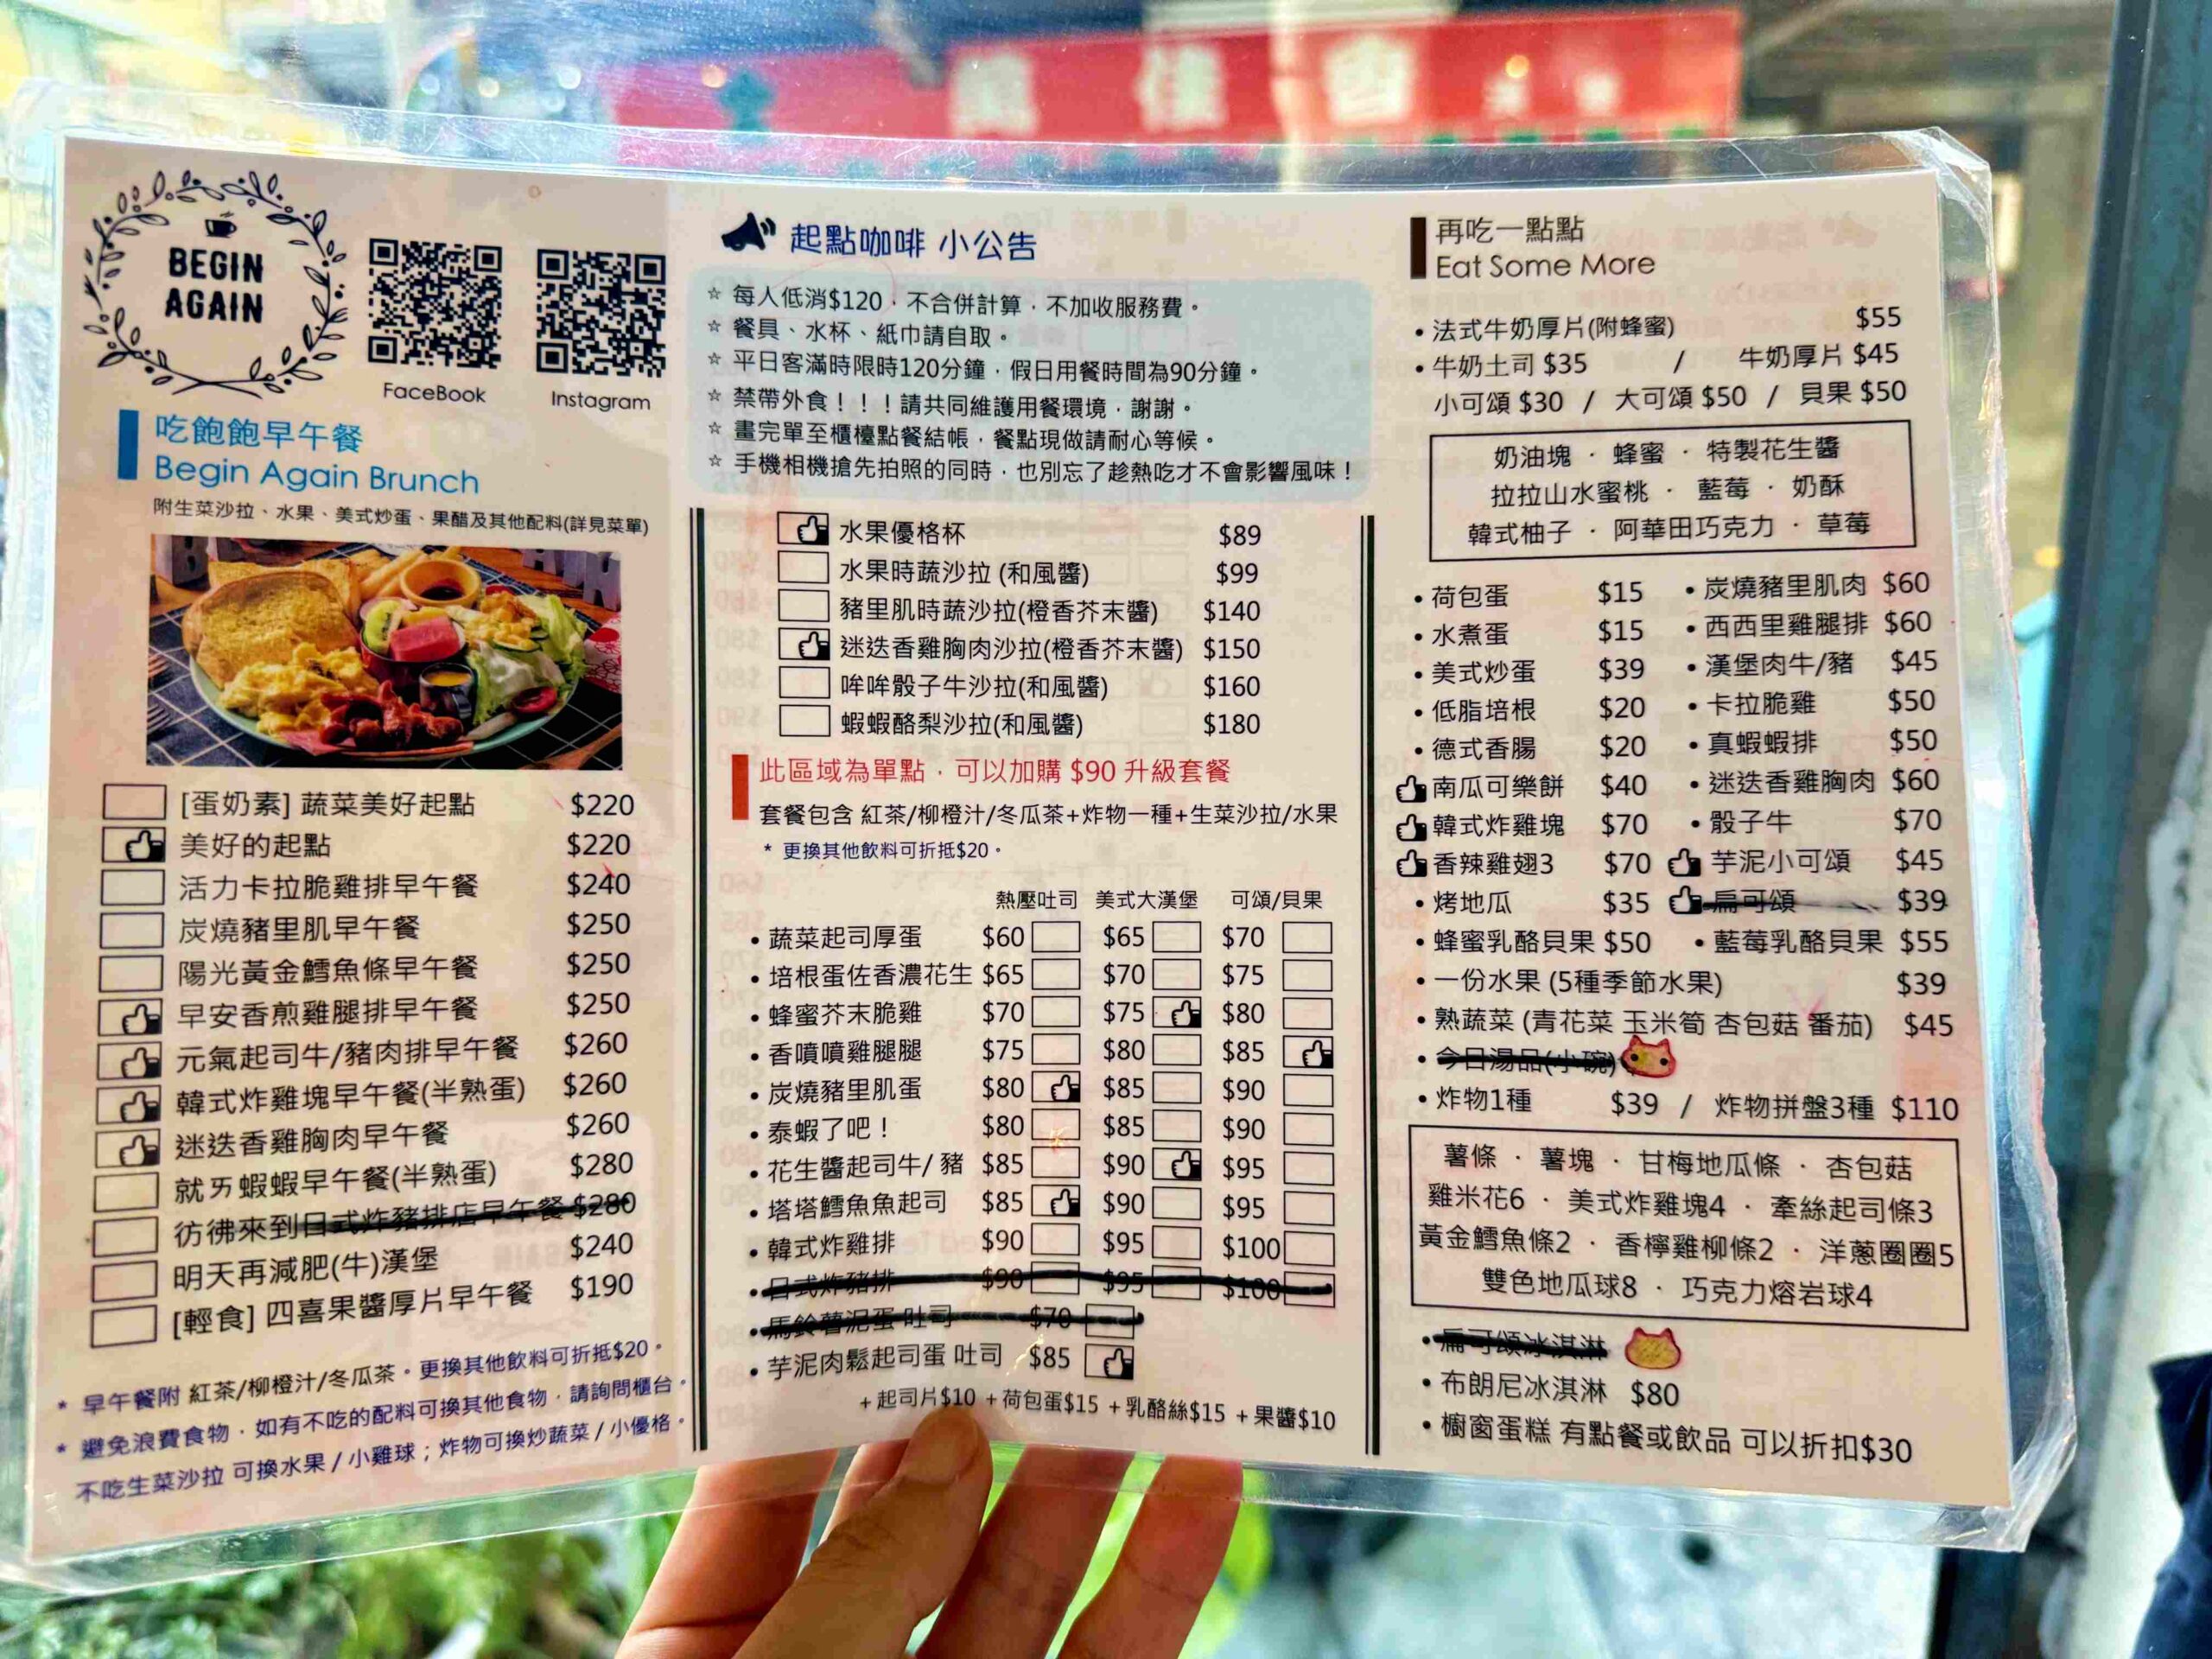 BEGIN
AGAIN
FaceBook
Instagram
吃飽飽早午餐
Begin Again Brunch
附生菜沙拉、水果、美式炒蛋、果醋及其他配料(詳見菜單)
[蛋奶素] 蔬菜美好起點 $220
美好的起點 $220
活力卡拉脆雞排早午餐 $240
炭燒豬里肌早午餐 $250
陽光黃金鱈魚條早午餐 $250
早安香煎雞腿排早午餐 $250
元氣起司牛/豬肉排早午餐 $260
韓式炸雞塊早午餐(半熟蛋) $260
迷迭香雞胸肉早午餐 $260
就ㄞ蝦蝦早午餐(半熟蛋) $280
彷彿來到日式炸豬排店早午餐 $280
明天再減肥(牛)漢堡 $240
[輕食] 四喜果醬厚片早午餐 $190
* 早午餐附 紅茶/柳橙汁/冬瓜茶。更換其他飲料可折抵$20。
* 避免浪費食物，如有不吃的配料可換其他食物，請詢問櫃台。
不吃生菜沙拉 可換水果 / 小雞球；炸物可換炒蔬菜 / 小優格。
起點咖啡 小公告
☆ 每人低消$120，不合併計算，不加收服務費。
☆ 餐具、水杯、紙巾請自取。
☆ 平日客滿時限時120分鐘，假日用餐時間為90分鐘。
☆ 禁帶外食！！！請共同維護用餐環境，謝謝。
☆ 畫完單至櫃檯點餐結帳，餐點現做請耐心等候。
☆ 手機相機搶先拍照的同時，也別忘了趁熱吃才不會影響風味！
水果優格杯 $89
水果時蔬沙拉 (和風醬) $99
豬里肌時蔬沙拉(橙香芥末醬) $140
迷迭香雞胸肉沙拉(橙香芥末醬) $150
哞哞骰子牛沙拉(和風醬) $160
蝦蝦酪梨沙拉(和風醬) $180
此區域為單點，可以加購 $90 升級套餐
套餐包含 紅茶/柳橙汁/冬瓜茶+炸物一種+生菜沙拉/水果
* 更換其他飲料可折抵$20。
熱壓吐司 美式大漢堡 可頌/貝果
• 蔬菜起司厚蛋 $60 $65 $70
• 培根蛋佐香濃花生 $65 $70 $75
• 蜂蜜芥末脆雞 $70 $75 $80
• 香噴噴雞腿腿 $75 $80 $85
• 炭燒豬里肌蛋 $80 $85 $90
• 泰蝦了吧！ $80 $85 $90
• 花生醬起司牛/ 豬 $85 $90 $95
• 塔塔鱈魚魚起司 $85 $90 $95
• 韓式炸雞排 $90 $95 $100
• 日式炸豬排 $90 $95 $100
• 馬鈴薯泥蛋 吐司 $70
• 芋泥肉鬆起司蛋 吐司 $85
+ 起司片$10 + 荷包蛋$15 + 乳酪絲$15 + 果醬$10
再吃一點點
Eat Some More
• 法式牛奶厚片(附蜂蜜) $55
• 牛奶土司 $35 / 牛奶厚片 $45
小可頌 $30 / 大可頌 $50 / 貝果 $50
奶油塊 · 蜂蜜 · 特製花生醬
拉拉山水蜜桃 · 藍莓 · 奶酥
韓式柚子 · 阿華田巧克力 · 草莓
• 荷包蛋 $15 • 炭燒豬里肌肉 $60
• 水煮蛋 $15 • 西西里雞腿排 $60
• 美式炒蛋 $39 • 漢堡肉牛/豬 $45
• 低脂培根 $20 • 卡拉脆雞 $50
• 德式香腸 $20 • 真蝦蝦排 $50
南瓜可樂餅 $40 • 迷迭香雞胸肉 $60
韓式炸雞塊 $70 • 骰子牛 $70
香辣雞翅3 $70 芋泥小可頌 $45
• 烤地瓜 $35 扁可頌 $39
• 蜂蜜乳酪貝果 $50 • 藍莓乳酪貝果 $55
• 一份水果 (5種季節水果) $39
• 熟蔬菜 (青花菜 玉米筍 杏包菇 番茄) $45
• 今日湯品(小碗)
• 炸物1種 $39 / 炸物拼盤3種 $110
薯條 · 薯塊 · 甘梅地瓜條 · 杏包菇
雞米花6 · 美式炸雞塊4 · 牽絲起司條3
黃金鱈魚條2 · 香檸雞柳條2 · 洋蔥圈圈5
雙色地瓜球8 · 巧克力熔岩球4
• 扁可頌冰淇淋
• 布朗尼冰淇淋 $80
• 櫥窗蛋糕 有點餐或飲品 可以折扣$30